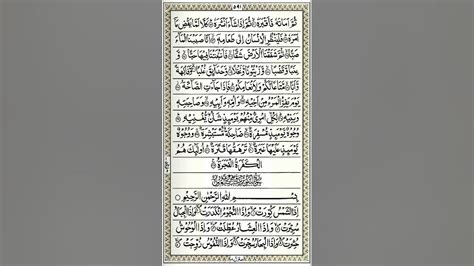 ۵۹۱
ثُمَّ اَمَاتَهٗ فَاَقْبَرَهٗ ۝ ثُمَّ اِذَا شَآءَ اَنْشَرَهٗ ۝ كَلَّا لَمَّا يَقْضِ مَآ
اَمَرَهٗ ۝ فَلْيَنْظُرِ الْاِنْسَانُ اِلٰى طَعَامِهٖٓ ۝ اَنَّا صَبَبْنَا الْمَآءَ
صَبًّا ۝ ثُمَّ شَقَقْنَا الْاَرْضَ شَقًّا ۝ فَاَنْۢبَتْنَا فِيْهَا حَبًّا ۝ وَّ
عِنَبًا وَّقَضْبًا ۝ وَّزَيْتُوْنًا وَّنَخْلًا ۝ وَّحَدَآئِقَ غُلْبًا ۝ وَّفَاكِهَةً
وَّاَبًّا ۝ مَّتَاعًا لَّكُمْ وَلِاَنْعَامِكُمْ ۝ فَاِذَا جَآءَتِ الصَّآخَّةُ ۝
يَوْمَ يَفِرُّ الْمَرْءُ مِنْ اَخِيْهِ ۝ وَاُمِّهٖ وَاَبِيْهِ ۝ وَصَاحِبَتِهٖ
وَبَنِيْهِ ۝ لِكُلِّ امْرِئٍ مِّنْهُمْ يَوْمَئِذٍ شَاْنٌ يُّغْنِيْهِ ۝
وُجُوْهٌ يَّوْمَئِذٍ مُّسْفِرَةٌ ۝ ضَاحِكَةٌ مُّسْتَبْشِرَةٌ ۝ وَوُجُوْهٌ
يَّوْمَئِذٍ عَلَيْهَا غَبَرَةٌ ۝ تَرْهَقُهَا قَتَرَةٌ ۝ اُولٰٓئِكَ هُمُ
الْكَفَرَةُ الْفَجَرَةُ ۝
بِسْمِ اللّٰهِ الرَّحْمٰنِ الرَّحِيْمِ ۝
اِذَا الشَّمْسُ كُوِّرَتْ ۝ وَاِذَا النُّجُوْمُ انْكَدَرَتْ ۝ وَاِذَا الْجِبَالُ
سُيِّرَتْ ۝ وَاِذَا الْعِشَارُ عُطِّلَتْ ۝ وَاِذَا الْوُحُوْشُ
حُشِرَتْ ۝ وَاِذَا الْبِحَارُ سُجِّرَتْ ۝ وَاِذَا النُّفُوْسُ زُوِّجَتْ ۝